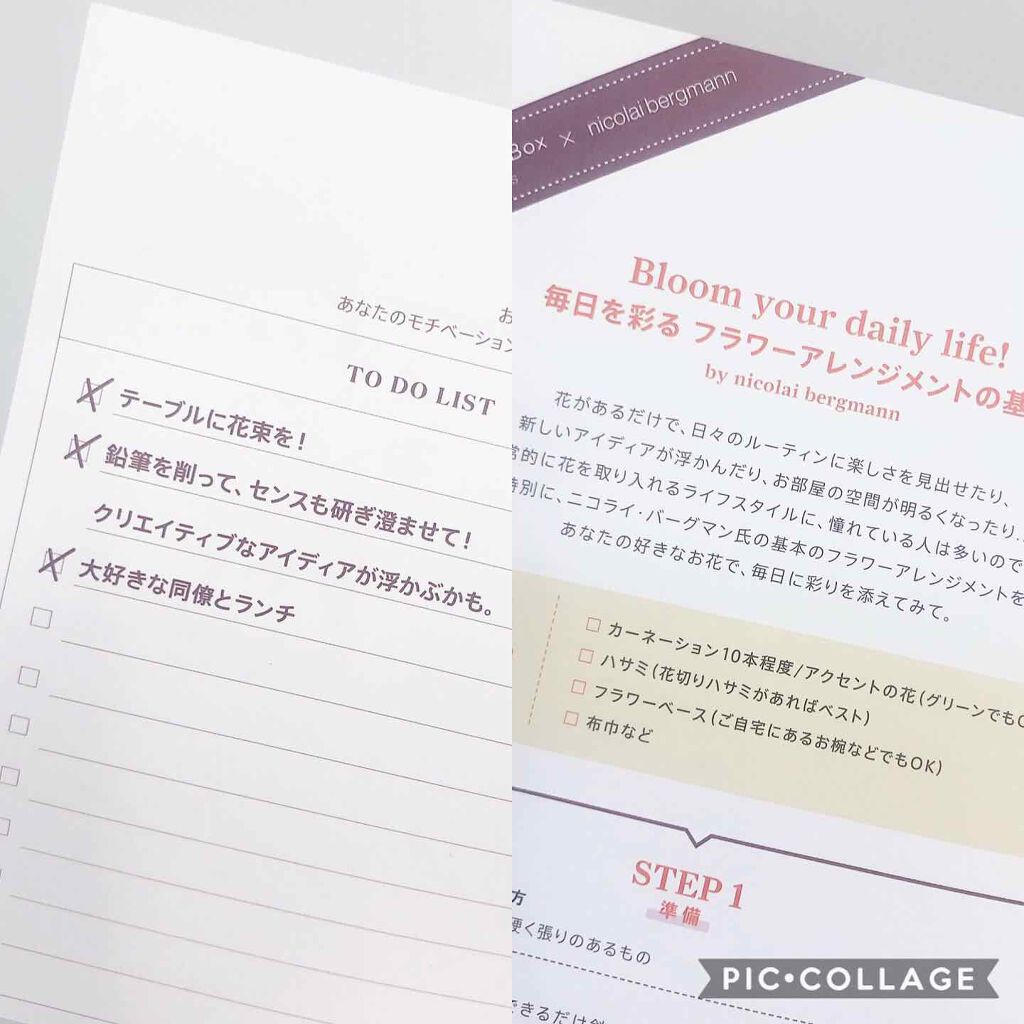 お
あなたのモチベーション
TO DO LIST
テーブルに花束を！
鉛筆を削って、センスも研ぎ澄ませて！
クリエイティブなアイディアが浮かぶかも。
大好きな同僚とランチ
Box × nicolai bergmann
Bloom your daily life!
毎日を彩る フラワーアレンジメントの基
by nicolai bergmann
花があるだけで、日々のルーティンに楽しさを見出せたり、
新しいアイディアが浮かんだり、お部屋の空間が明るくなったり…
常的に花を取り入れるライフスタイルに、憧れている人は多いので
特別に、ニコライ・バーグマン氏の基本のフラワーアレンジメントを
あなたの好きなお花で、毎日に彩りを添えてみて。
カーネーション10本程度/アクセントの花（グリーンでもO
ハサミ（花切りハサミがあればベスト）
フラワーベース（ご自宅にあるお椀などでもOK）
布巾など
STEP 1
準備
方
硬く張りのあるもの
できるだけ斜
PIC•COLLAGE